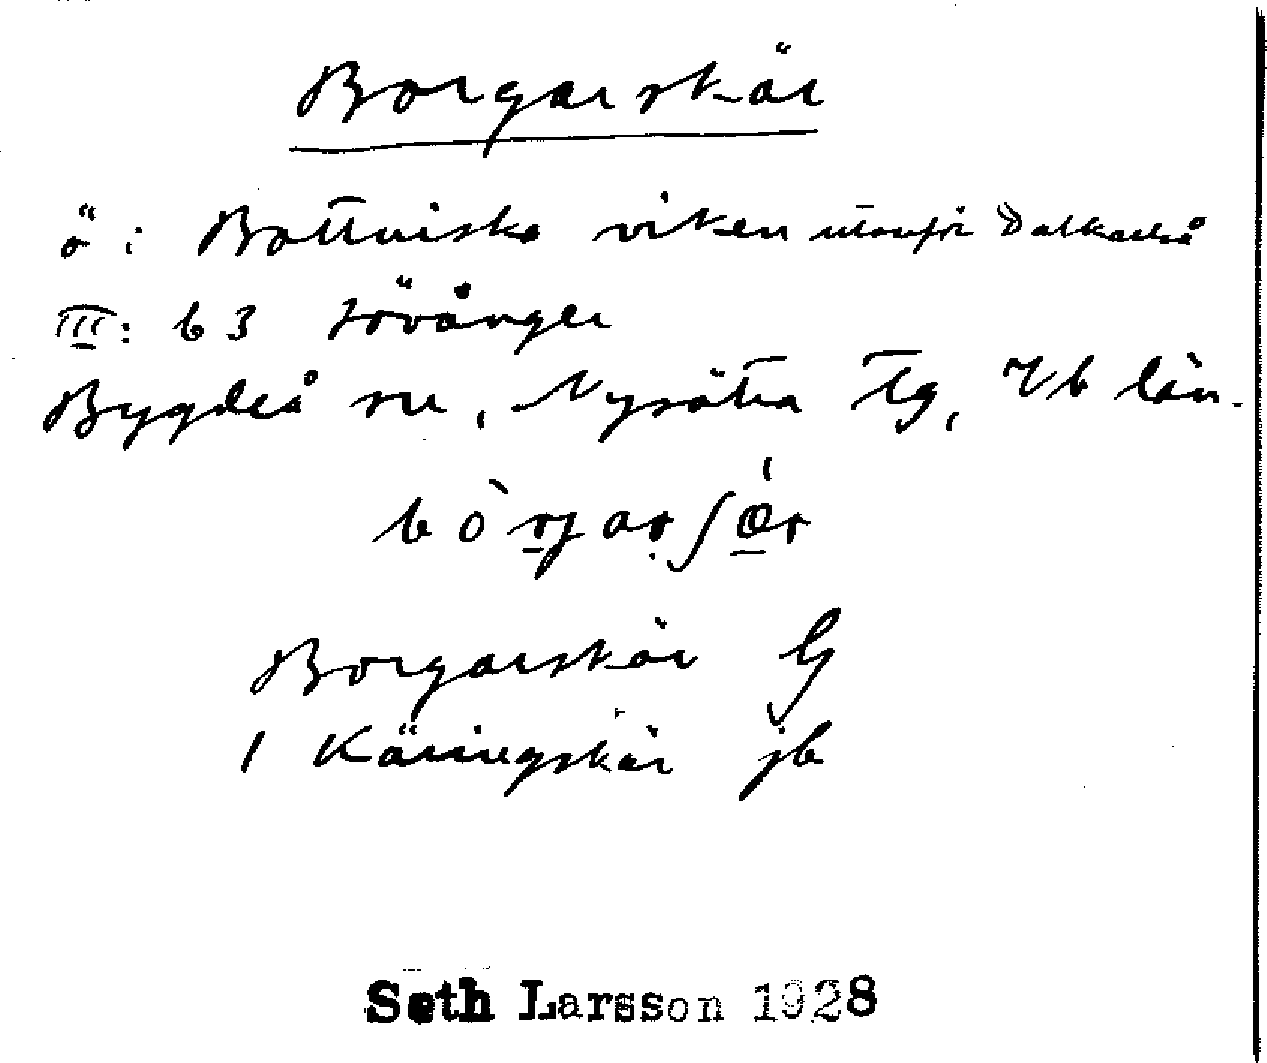 Borgarskär
ö i Bottniska viken utanför Dalkarlså
III: b 3 Lövånger
Bygdeå sn, Nysätra tg, Vb län.
bòrjarʃǽr
Borgarskär G
1 Käringskär jb
Seth Larsson 1928